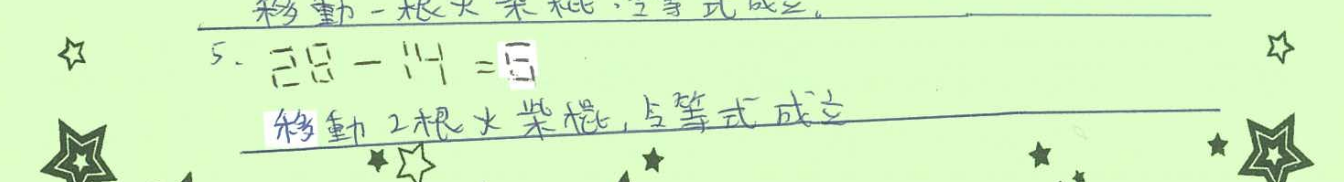 移動一根火柴棍,令等式成立。
5. 28-14=5
移動2根火柴棍,令等式成立